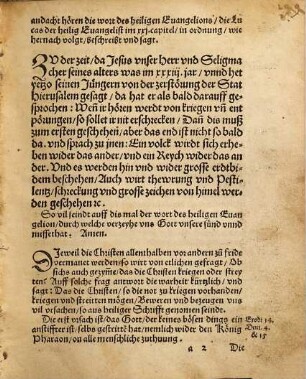 andacht hören die wort des heiligen Euangelions / die Lu
cas der heilig Euangelist im xxj. capitel / in ordnung / wie
hernach volgt / beschreibt vnd sagt.
ZV der zeit / da Jesus vnser Herr vnd Seligma
cher seines alters was im xxxiij. jar / vnnd het
yetzo seinen Jüngern von der zerstörung der Stat
Hierusalem gesagt / da hat er als bald darauff ge-
sprochen: Weñ ir hören werdt von kriegen vñ ent
pörungen / so sollet ir nit erschrecken / Dañ dis muß
zum ersten geschehen / aber das end ist nicht so bald
da. vnd sprach zu jnen: Ein volck wirdt sich erhe-
ben wider das ander / vnd ein Reych wider das an
der. Vnd es werden hin vnd wider grosse erdtbi-
dem beschehen / Auch wirt thewrung vnd Pesti-
lentz / schreckung vnd grosse zeichen von himel wer-
den geschehen ꝛc.
So vil seindt auff dis mal der wort des heiligen Euan
gelion / durch welche verzeyhe vns Gott vnsere sünd vnnd
missethat. Amen.
DIeweil die Christen allenhalben von andern zů frede
vermanet werden / ist wirt vor allen erstlich gefragt / Ob
sichs auch gezyme / das die Christen kriegen oder strey
ten? Auff solche frag antwort die warheit kürtzlich / vnd
sagt: Das die Christen / so die not zu kriegen vorhanden /
kriegen vnd streitten mögen / Beweren vnd bezeugen vns
vil vrsachen / so aus heiliger Schrifft genomen seindt.
Die erst vrsach ist / das Gott / der keines bösen dings ein
anstiffter ist / selbs gestritt hat / nemlich wider den König
Pharaon / vm alle menschliche zuthuung.
Exobi 14.
Deut. 4.
& 15
a 2 Die